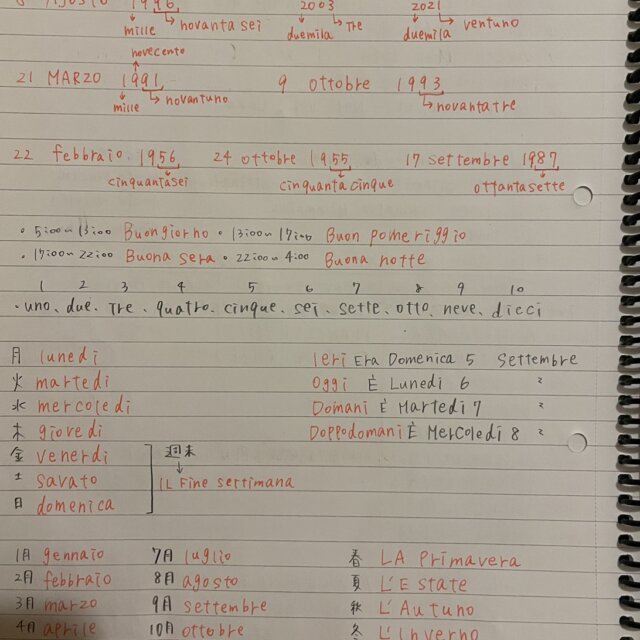 1996 2003 2021
mille novanta sei duemila Tre duemila ventuno
novecento
21 MARZO 1991 9 ottobre 1993
mille novantuno novantatre
22 febbraio 1956 24 ottobre 1955 17 settembre 1987
cinquantasei cinquanta cinque ottantasette
・5:00〜13:00 Buongiorno ・13:00〜17:00 Buon pomeriggio
・17:00〜22:00 Buona sera ・22:00〜4:00 Buona notte
1 2 3 4 5 6 7 8 9 10
・uno、due、Tre、quatro、cinque、sei、sette、otto、neve、dicci
月 lunedi Ieri Era Domenica 5 Settembre
火 martedi Oggi È Lunedi 6 〃
水 mercoledi Domani È Martedi 7 〃
木 giovedi Doppodomani È Mercoledi 8 〃
金 venerdi 週末
土 savato ↓ IL Fine serrimana
日 domenica
1月 gennaio 7月 luglio 春 LA Primavera
2月 febbraio 8月 agosto 夏 L'Estate
3月 marzo 9月 settembre 秋 L'Autuno
4月 aprile 10月 ottobre 冬 L'Inverno